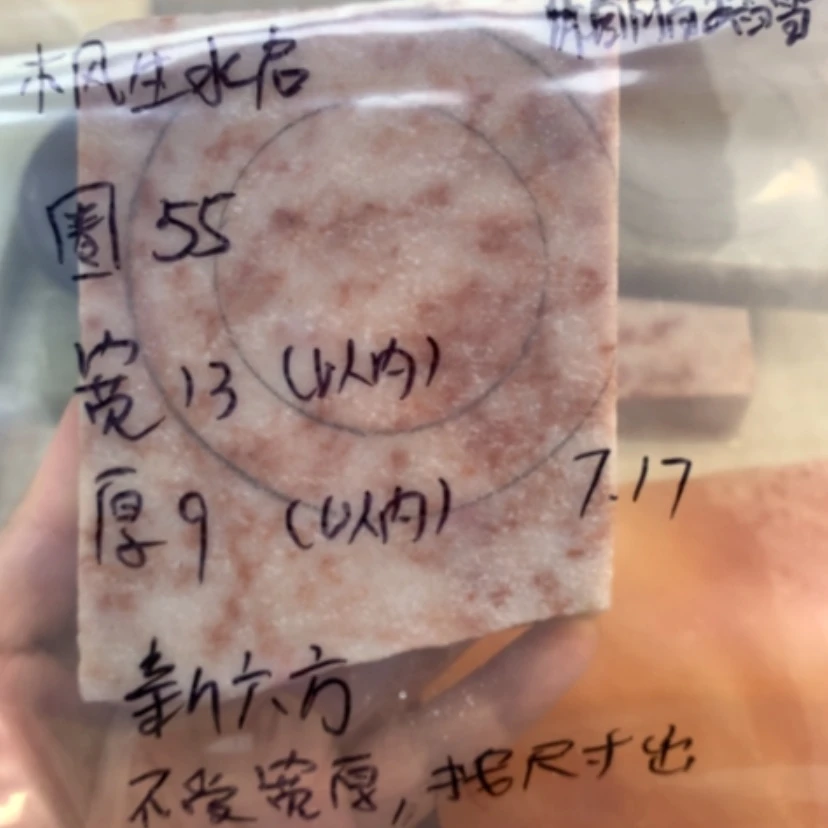 木风生水启
圈 55
宽 13 (以内)
厚 9 (以内)
7.17
新六方
不受宽厚,按尺寸出